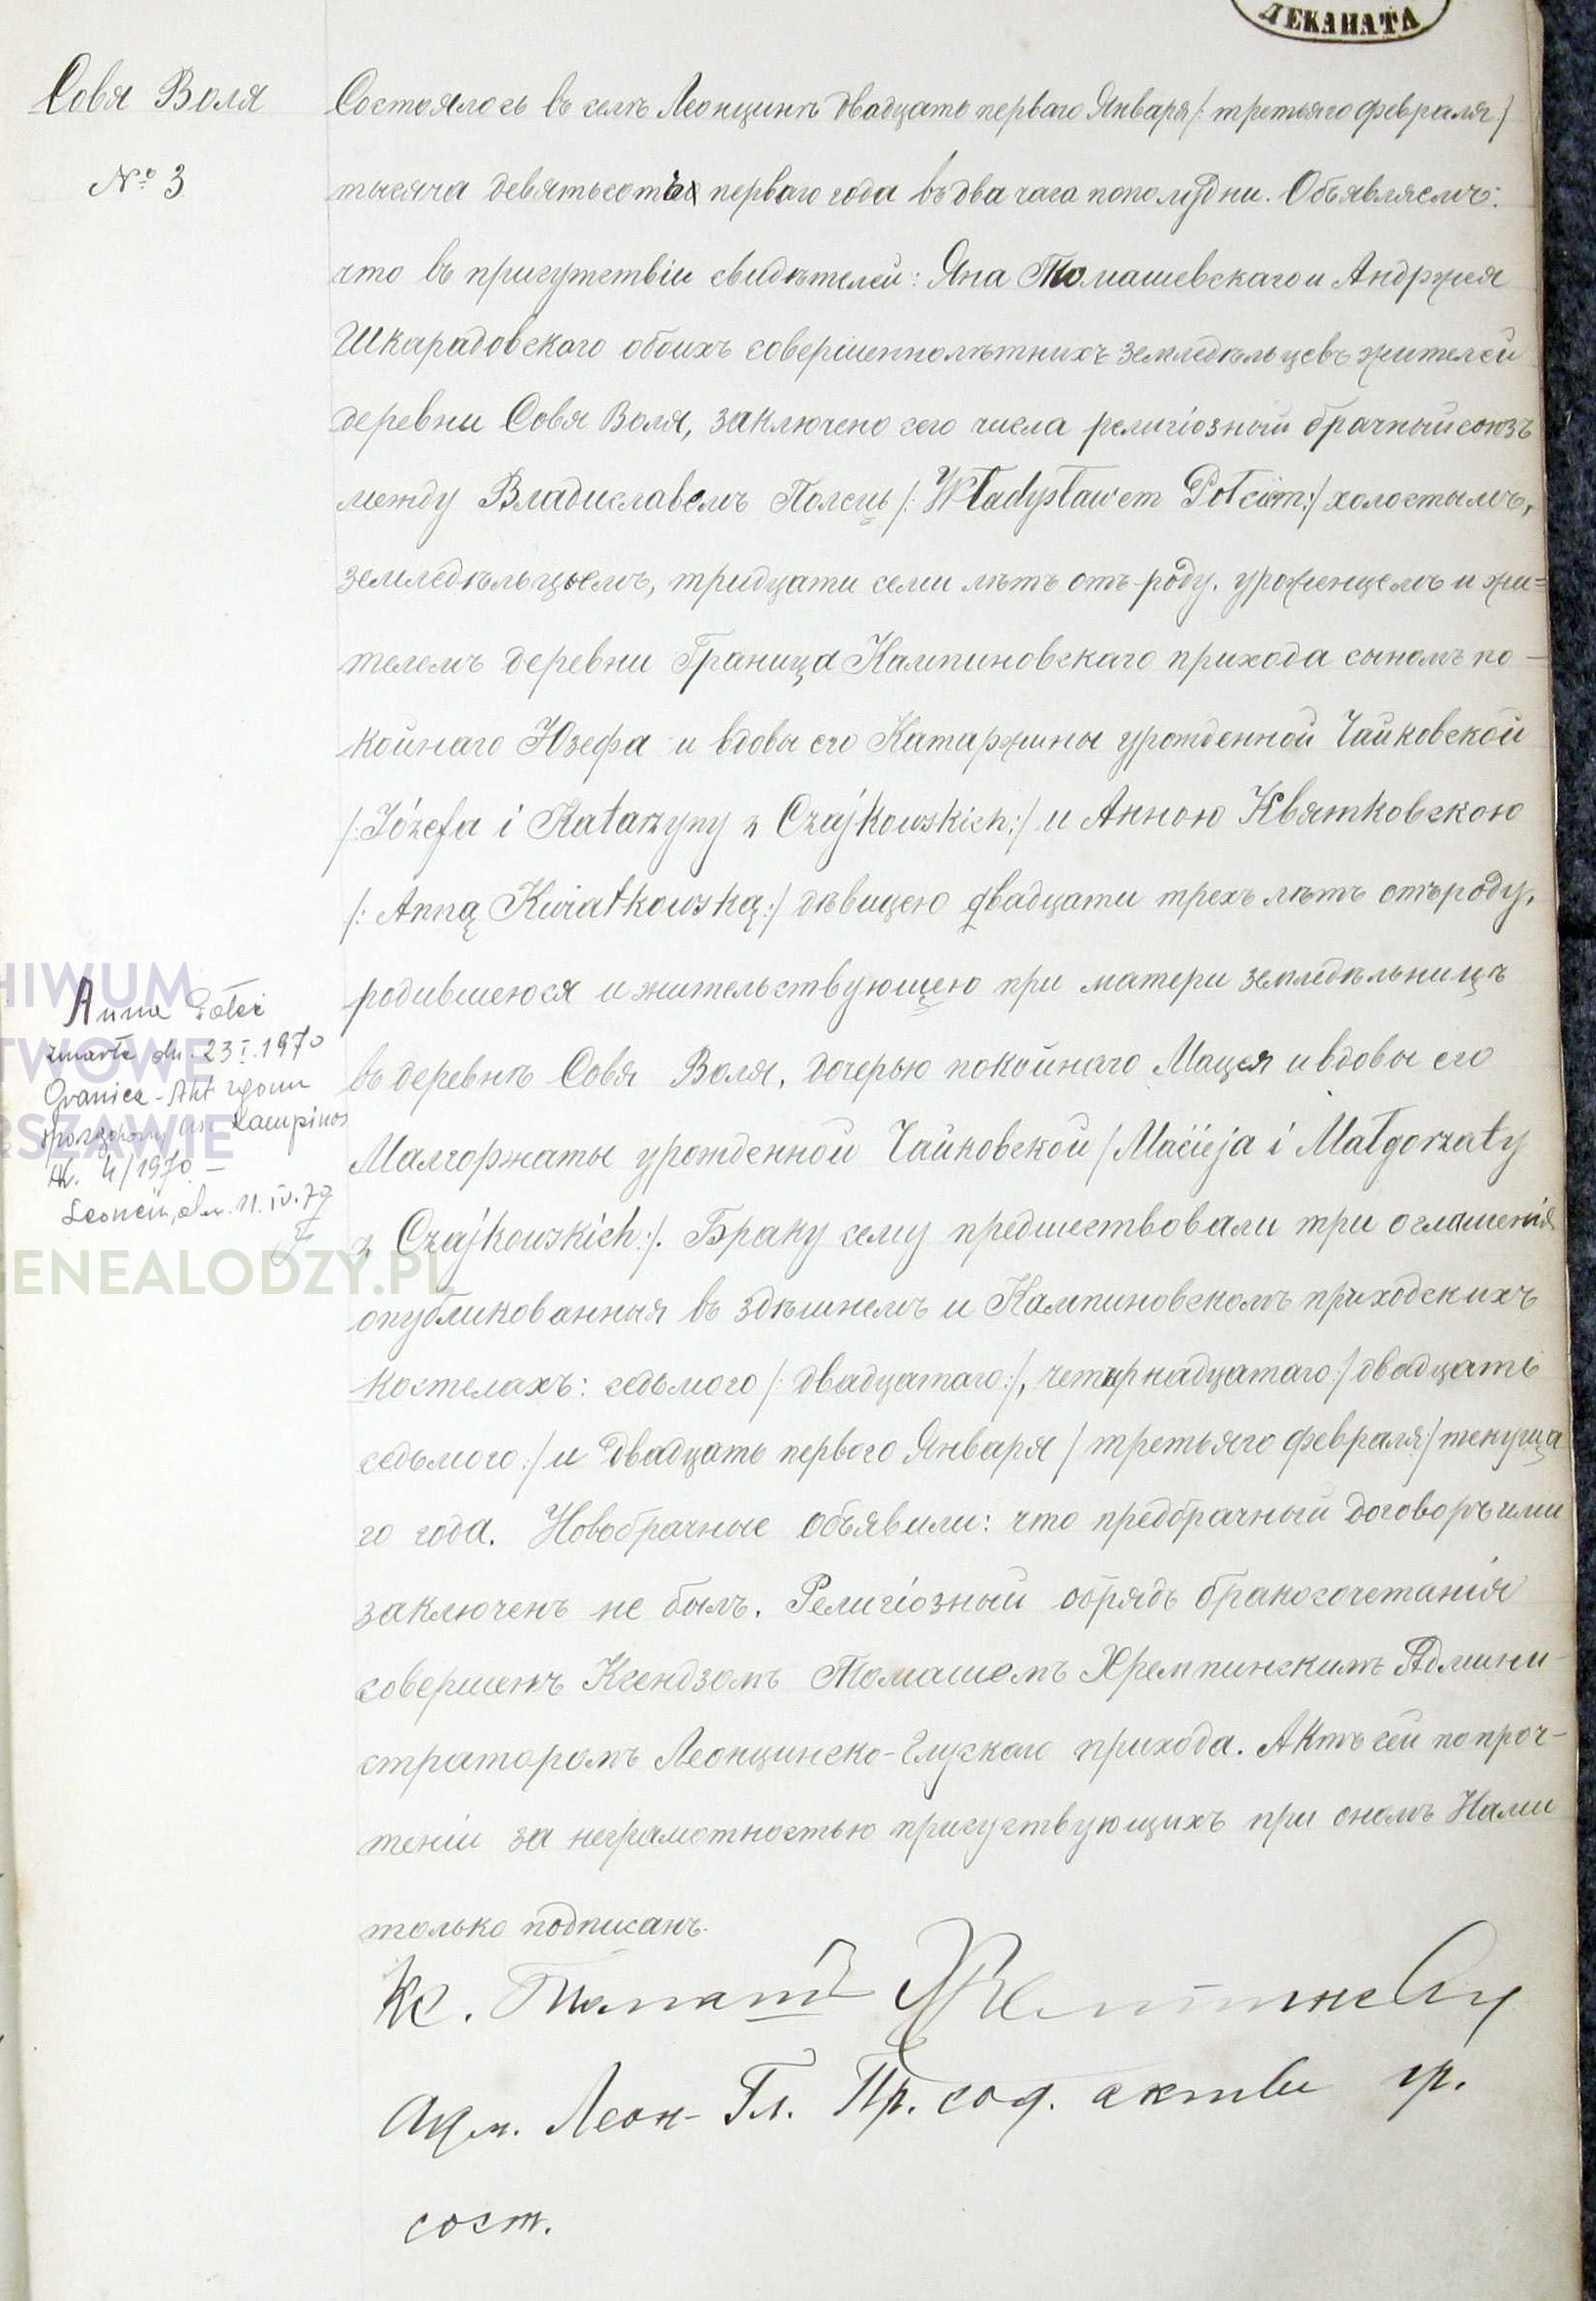 ДЕКАНАТА
Совя Воля
№ 3
Состоялось въ селѣ Леонцинѣ двадцать перваго Января /: третьяго февраля /
тысяча девятьсотъ перваго года въ два часа пополудни. Объявляемъ:
что въ присутствіи свидѣтелей: Яна Томашевскаго и Андржея
Шкарадовскаго обоихъ совершеннолѣтнихъ земледѣльцевъ жителей
деревни Совя Воля, заключено сего числа религіозный брачный союзъ
между Владиславомъ Полець /: Władysławem Połciem :/ холостымъ,
земледѣльцемъ, тридцати семи лѣтъ отъ роду, уроженцемъ и жи=
телемъ деревни Граница Кампиновскаго прихода сыномъ по-
койнаго Юзефа и вдовы его Катаржины урожденной Чайковской
/: Józefa i Katarzyny z Czajkowskich :/ и Анною Квятковскою
/: Anną Kwiatkowską :/ дѣвицею двадцати трехъ лѣтъ отъ роду,
родившеюся и жительствующею при матери земледѣльницѣ
въ деревнѣ Совя Воля, дочерью покойнаго Мацея и вдовы его
Малгоржаты урожденной Чайковской / Macieja i Małgorzaty
z Czajkowskich :/. Браку сему предшествовали три оглашенія
опубликованныя въ здѣшнемъ и Кампиновскомъ приходскихъ
костелахъ: седьмого /: двадцатаго :/, четырнадцатаго :/ двадцать
седьмого :/ и двадцать перваго Января / третьяго февраля :/ текуща
го года. Новобрачные объявили: что предбрачный договоръ ими
заключенъ не былъ. Религіозный обрядъ бракосочетанія
совершенъ Ксендзомъ Томашомъ Хремпинскимъ Админи-
страторомъ Леонцинско-Глускаго прихода. Актъ сей по проч-
теніи за неграмотностью присуствующихъ при ономъ Нами
только подписанъ.
Кс. Томашъ Хремпинскій
Адм. Леон- Гл. Пр. сод. актвы гр.
сост.
Anna Połeć
zmarła dn. 23 I. 1970
Granica - Akt zgonu
sporządzony Kampinos
Nr. 4/1970 –
Leoncin, dn. 11. IV. 77
HIWUM
TWOWE
RSZAWIE
GENEALODZY.PL